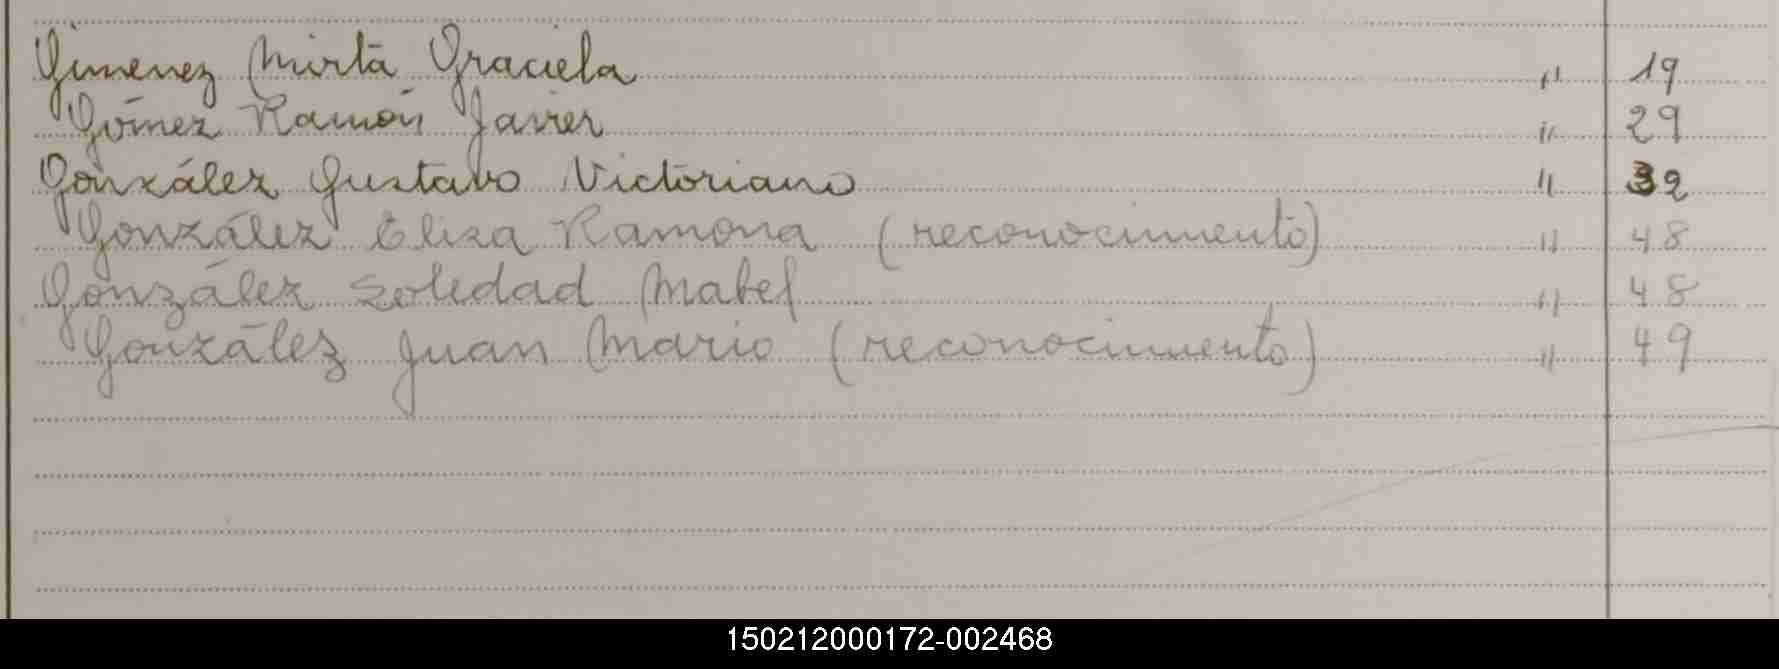 Gimenez Mirta Graciela " 19
Gómez Ramón Javier " 29
González Gustavo Victoriano " 32
González Elisa Ramona (reconocimiento) " 48
González Soledad Mabel " 48
González Juan Mario (reconocimiento) " 49
150212000172-002468